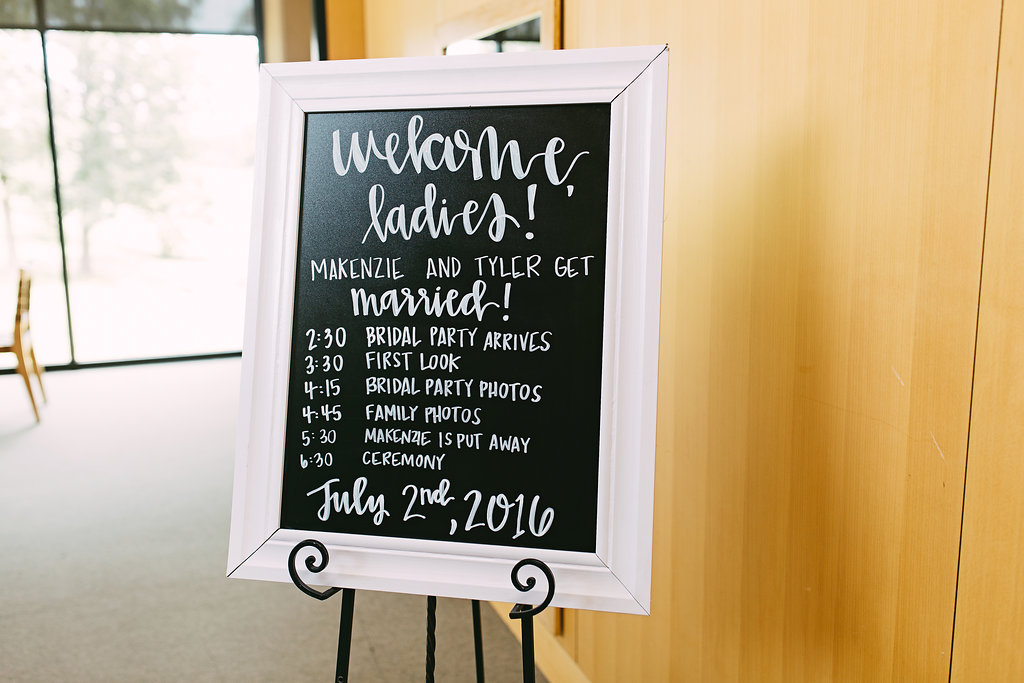 welcome,
ladies!
MAKENZIE AND TYLER GET
married!
2:30 BRIDAL PARTY ARRIVES
3:30 FIRST LOOK
4:15 BRIDAL PARTY PHOTOS
4:45 FAMILY PHOTOS
5:30 MAKENZIE IS PUT AWAY
6:30 CEREMONY
July 2nd, 2016